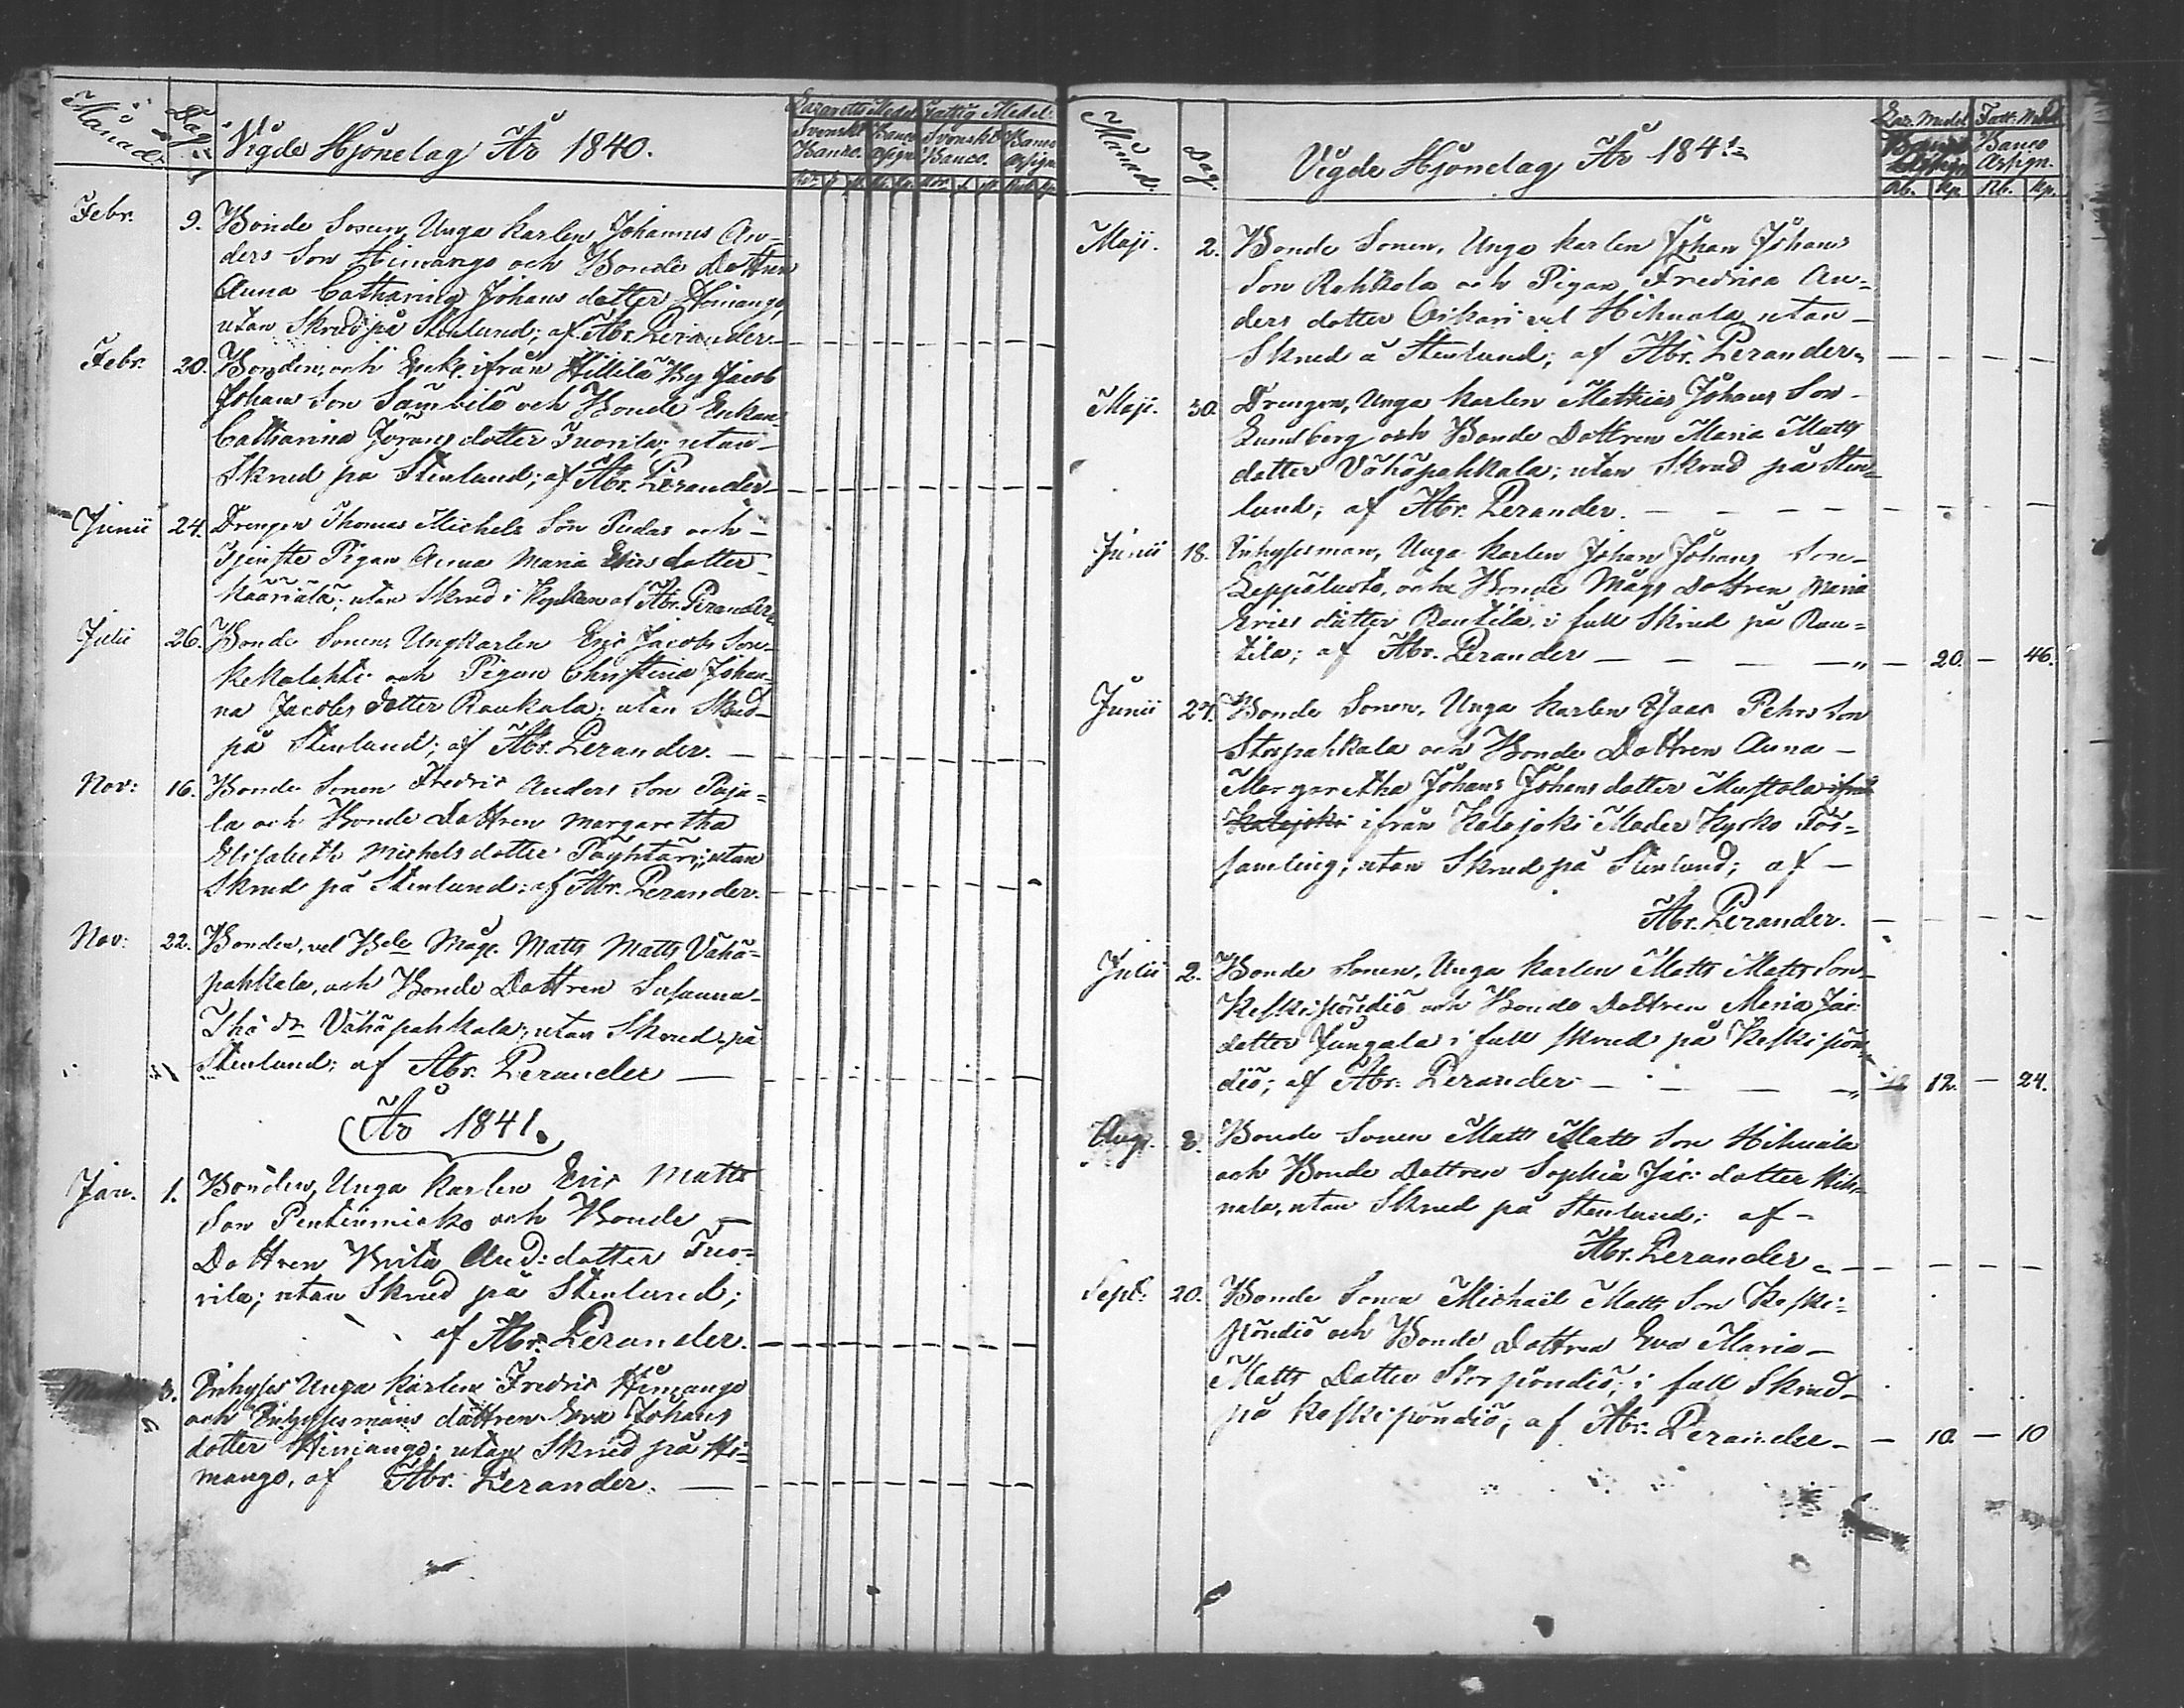 Månad.
Dag.
Vigde Hjonelag År 1840.
Lazaretts Medel Fattig Medel.
Svenskt Banco Svenskt Banco
Banco. Assign. Banco. Assign.
Febr. 9. Bonde Sonen, Unga Karlen Johannes An-
ders Son Himango och Bonde Dottren
Anna Catharina Johans dotter Himango,
utan Skrud på Stenlund; af Abr. Perander.
Febr. 20. Bonden, och Enkl. ifrån Hillilä By Jacob
Johans Son Saukilä och Bonde Enkan
Catharina Jörans dotter Tuorila; utan
Skrud på Stenlund; af Abr. Perander
Junii 24. Drengen Thomas Michels Son Pudas och
Tjenste Pigan Anna Maria Erics dotter
Määrälä; utan Skrud i Kyrkan af Abr. Perander
Julii 26. Bonde Sonen, Ungkarlen Eric Jacobs Son
Kekolahti och Pigan Christina Johan-
na Jacobs dotter Raukala; utan Skrud
på Stenlund; af Abr. Perander.
Nov: 16. Bonde Sonen Fredric Anders Son Paja-
la och Bonde Dottren Margaretha
Elisabeth Michels dotter Pöyhtäri; utan
Skrud på Stenlund; af Abr. Perander.
Nov: 22. Bonden, vel Bde Måge Matts Matts Vähä-
pahkala, och Bonde Dottren Susanna
Tho dr Vähäpahkala; utan Skrud på
Stenlund; af Abr. Perander
År 1841.
Jan. 1. Bonden, Unga Karlen Eric Matts
Son Penterimicko och Bonde
Dottren Brita And: dotter Tuo-
rila; utan Skrud på Stenlund;
af Abr. Perander.
Inhyses Unga Karlen Fredric Himango
och Inhysesmans dottren Eva Johans
dotter Himango; utan Skrud på Hi-
mango, af Abr. Perander.
Månad.
Dag.
Vigde Hjonelag År 1841.
Laz. Medel Fatt. Medel
Banco Banco
Assign. Assign.
Rb. Kp. Rb. Kp.
Maji. 2. Bonde Sonen, Unga karlen Johan Johans
Son Rahkola och Pigan Fredrica An-
ders dotter Oikari vel Hihnala utan
Skrud å Stenlund; af Abr. Perander.
Maji. 30. Drengen, Unga Karlen Mathias Johans Son
Lundberg och Bonde Dottren Maria Matts
dotter Vähäpahkala; utan Skrud på Sten-
lund; af Abr. Perander.
Junii 18. Inhysesman, Unga Karlen Johan Johans Son
Leppäluoto, och Bonde Mågs Dottren Maria
Erics dotter Rautila, i full Skrud på Rau-
tila; af Abr. Perander 20. 46.
Junii 27. Bonde Sonen, Unga Karlen Isaac Pehrs Son
Storpahkala och Bonde Dottren Anna
Margaretha Johans Johans dotter Mustola ifrån
Kalajoki ifrån Kalajoki Moder Kyrko För-
samling; utan Skrud på Stenlund; af
Abr. Perander.
Julii 2. Bonde Sonen, Unga Karlen Matts Matts Son
Keskipöndiö och Bonde Dottren Maria Jac:
dotter Jungala i full skrud på Keskipön-
diö; af Abr. Perander 12. 24.
Aug. 8. Bonde Sonen Matts Matts Son Hihnala
och Bonde Dottren Sophia Jac: dotter Hih-
nala, utan Skrud på Stenlund; af
Abr. Perander
Sept: 20. Bonde Sonen Michaël Matts Son Keski-
pöndiö och Bonde Dottren Eva Maria
Matts Dotter Storpöndiö; i full Skrud
på Keskipöndiö; af Abr. Perander 10. 10